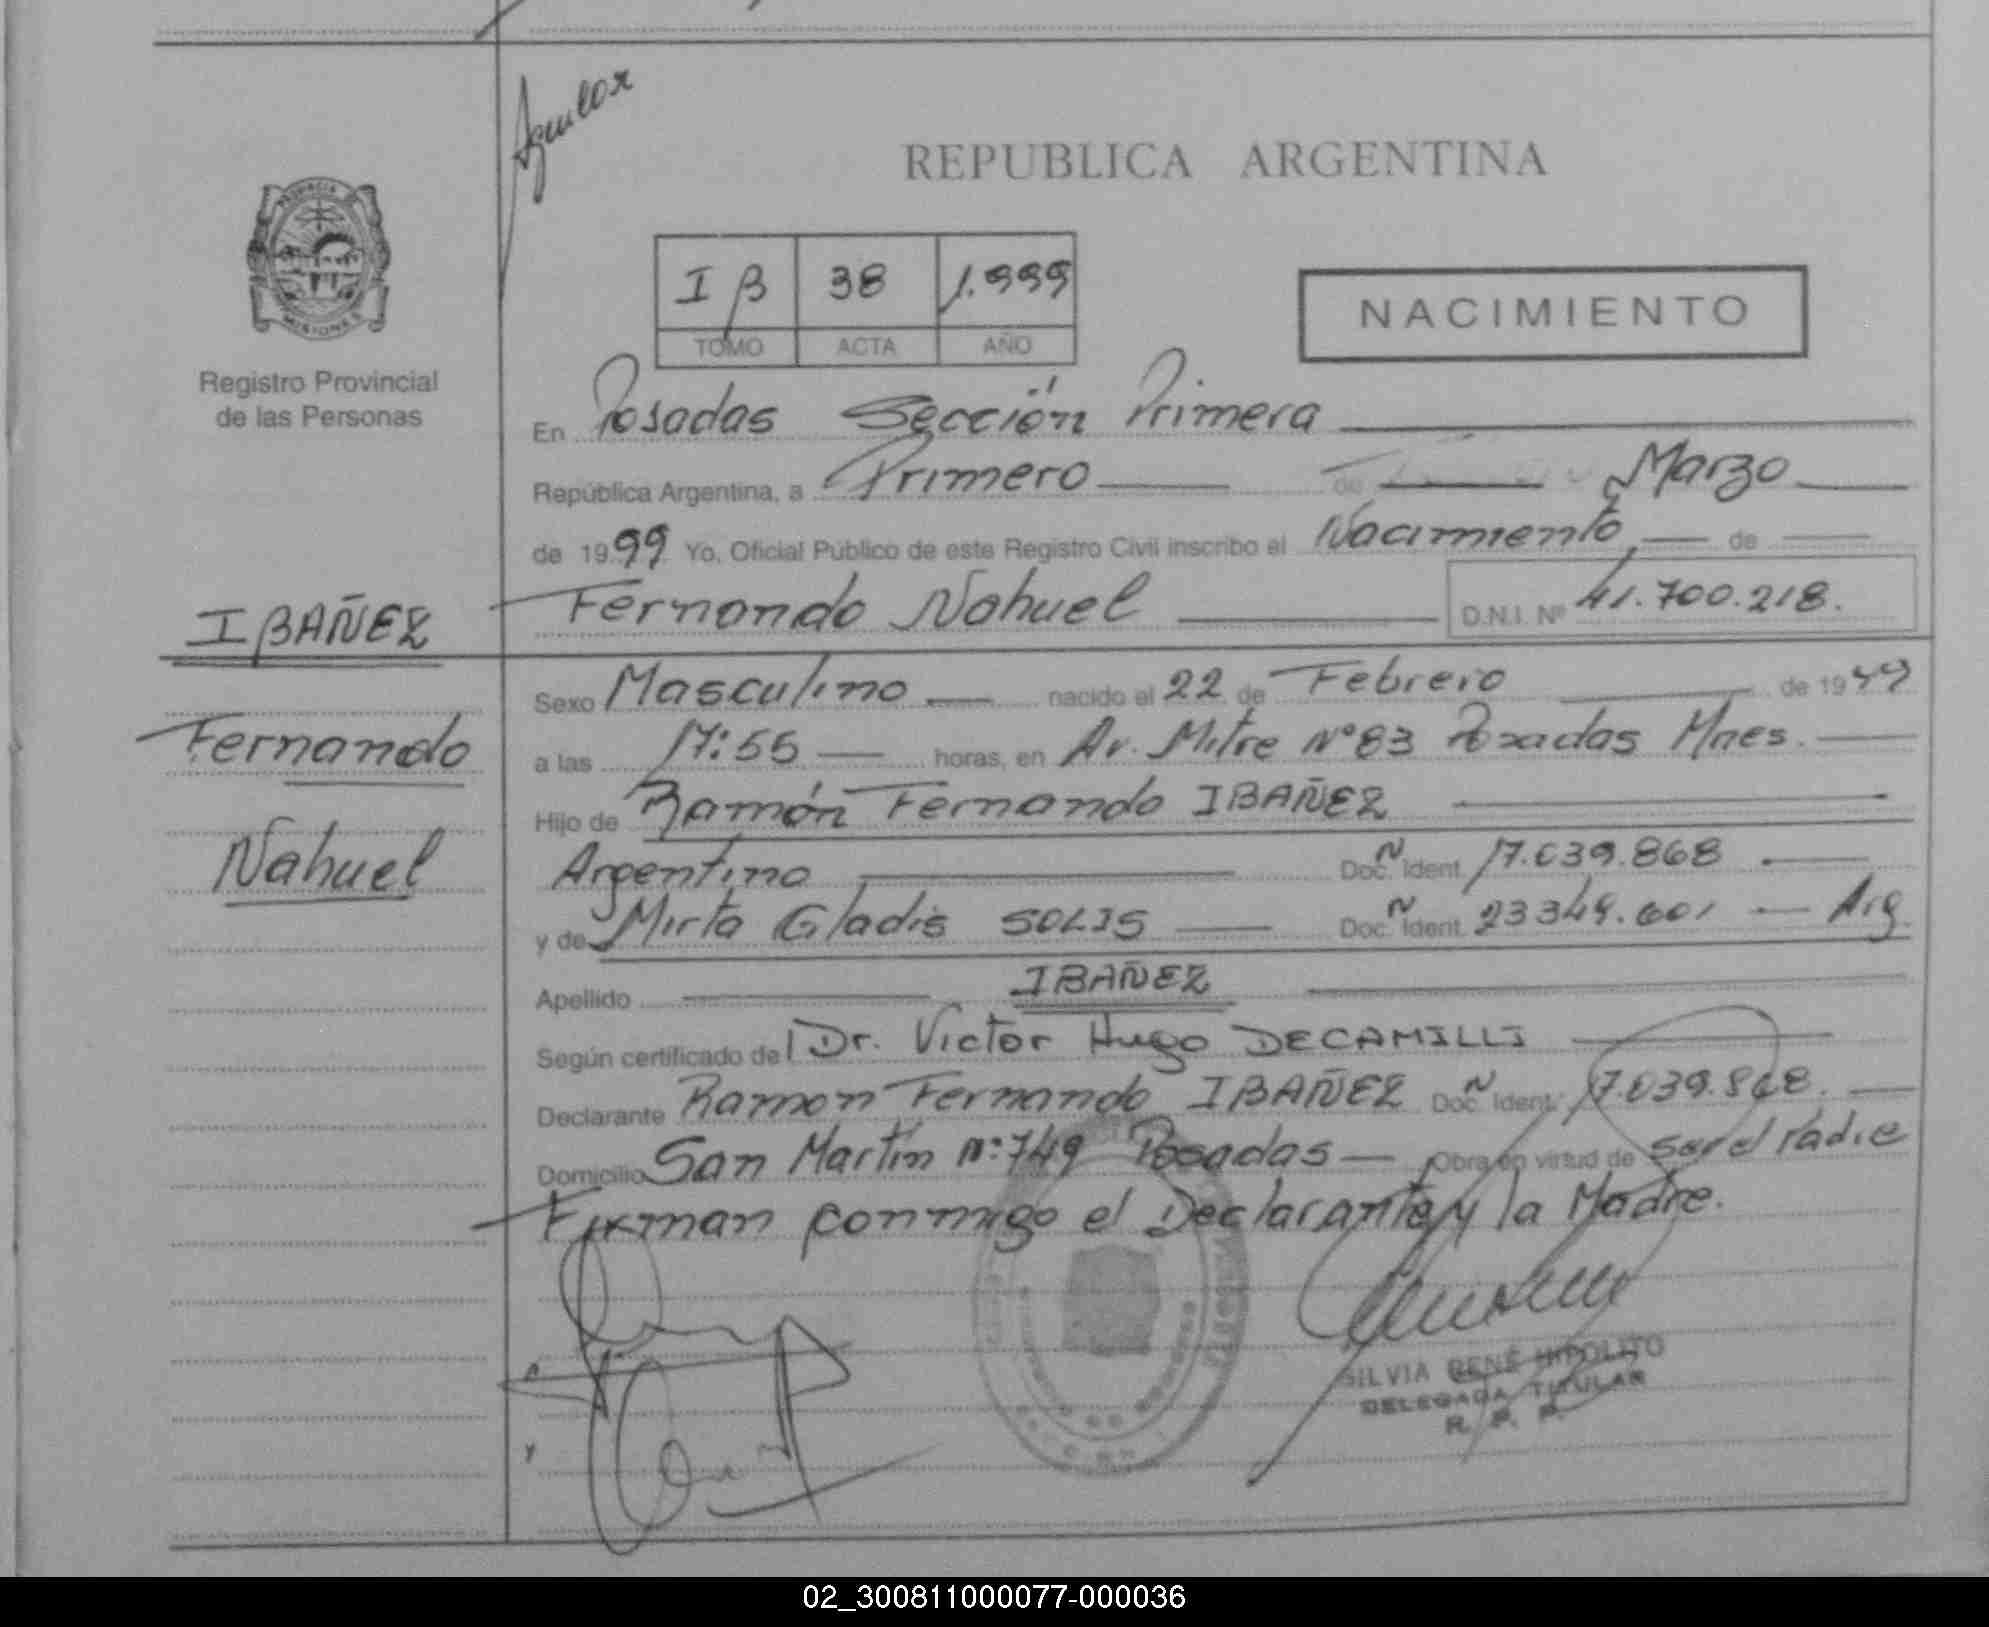 Aguilar
REPUBLICA ARGENTINA
PROVINCIA
MISIONES
Registro Provincial
de las Personas
I B 38 1.999
TOMO ACTA AÑO
NACIMIENTO
En Posadas Sección Primera
República Argentina, a Primero de Marzo
de 1999 Yo, Oficial Público de este Registro Civil inscribo el Nacimiento de
Fernando Nahuel D.N.I. Nº 41.700.218.
IBAÑEZ
Fernando
Nahuel
Sexo Masculino nacido el 22 de Febrero de 1999
a las 17:55 horas, en Av. Mitre Nº 83 Posadas Mnes.
Hijo de Ramón Fernando IBAÑEZ
Argentino Doc. N Ident. 17.039.868
y de Mirta Gladis SOLIS Doc. N Ident. 23349.601 Arg
Apellido IBAÑEZ
Según certificado del Dr. Victor Hugo DECAMILLI
Declarante Ramon Fernando IBAÑEZ Doc. N Ident. 17.039.868.
Domicilio San Martín Nº 749 Posadas Obra en virtud de ser el Padre
Firman conmigo el Declarante y la Madre.
SILVIA RENÉ HIPOLITO
DELEGADA TITULAR
R. P. P.
y
02_300811000077-000036